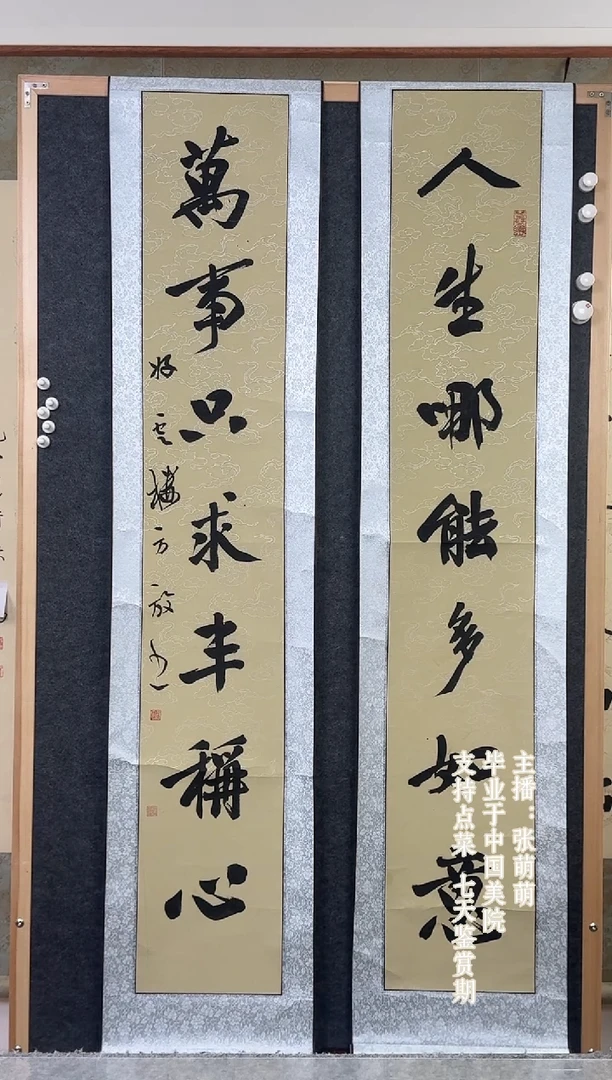 人生哪能多如意
萬事只求半稱心
主播：张萌萌
毕业于中国美院
支持点菜 七天鉴赏期